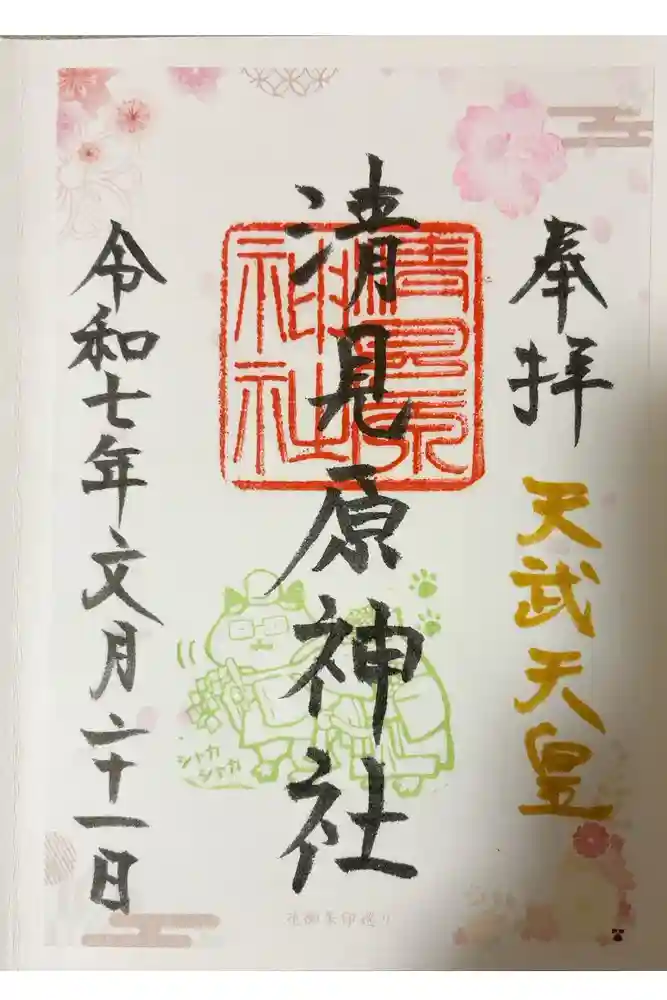 奉拝
天武天皇
清見原神社
清見原
神社
令和七年文月二十一日
シャカ
シャカ
花御朱印巡り